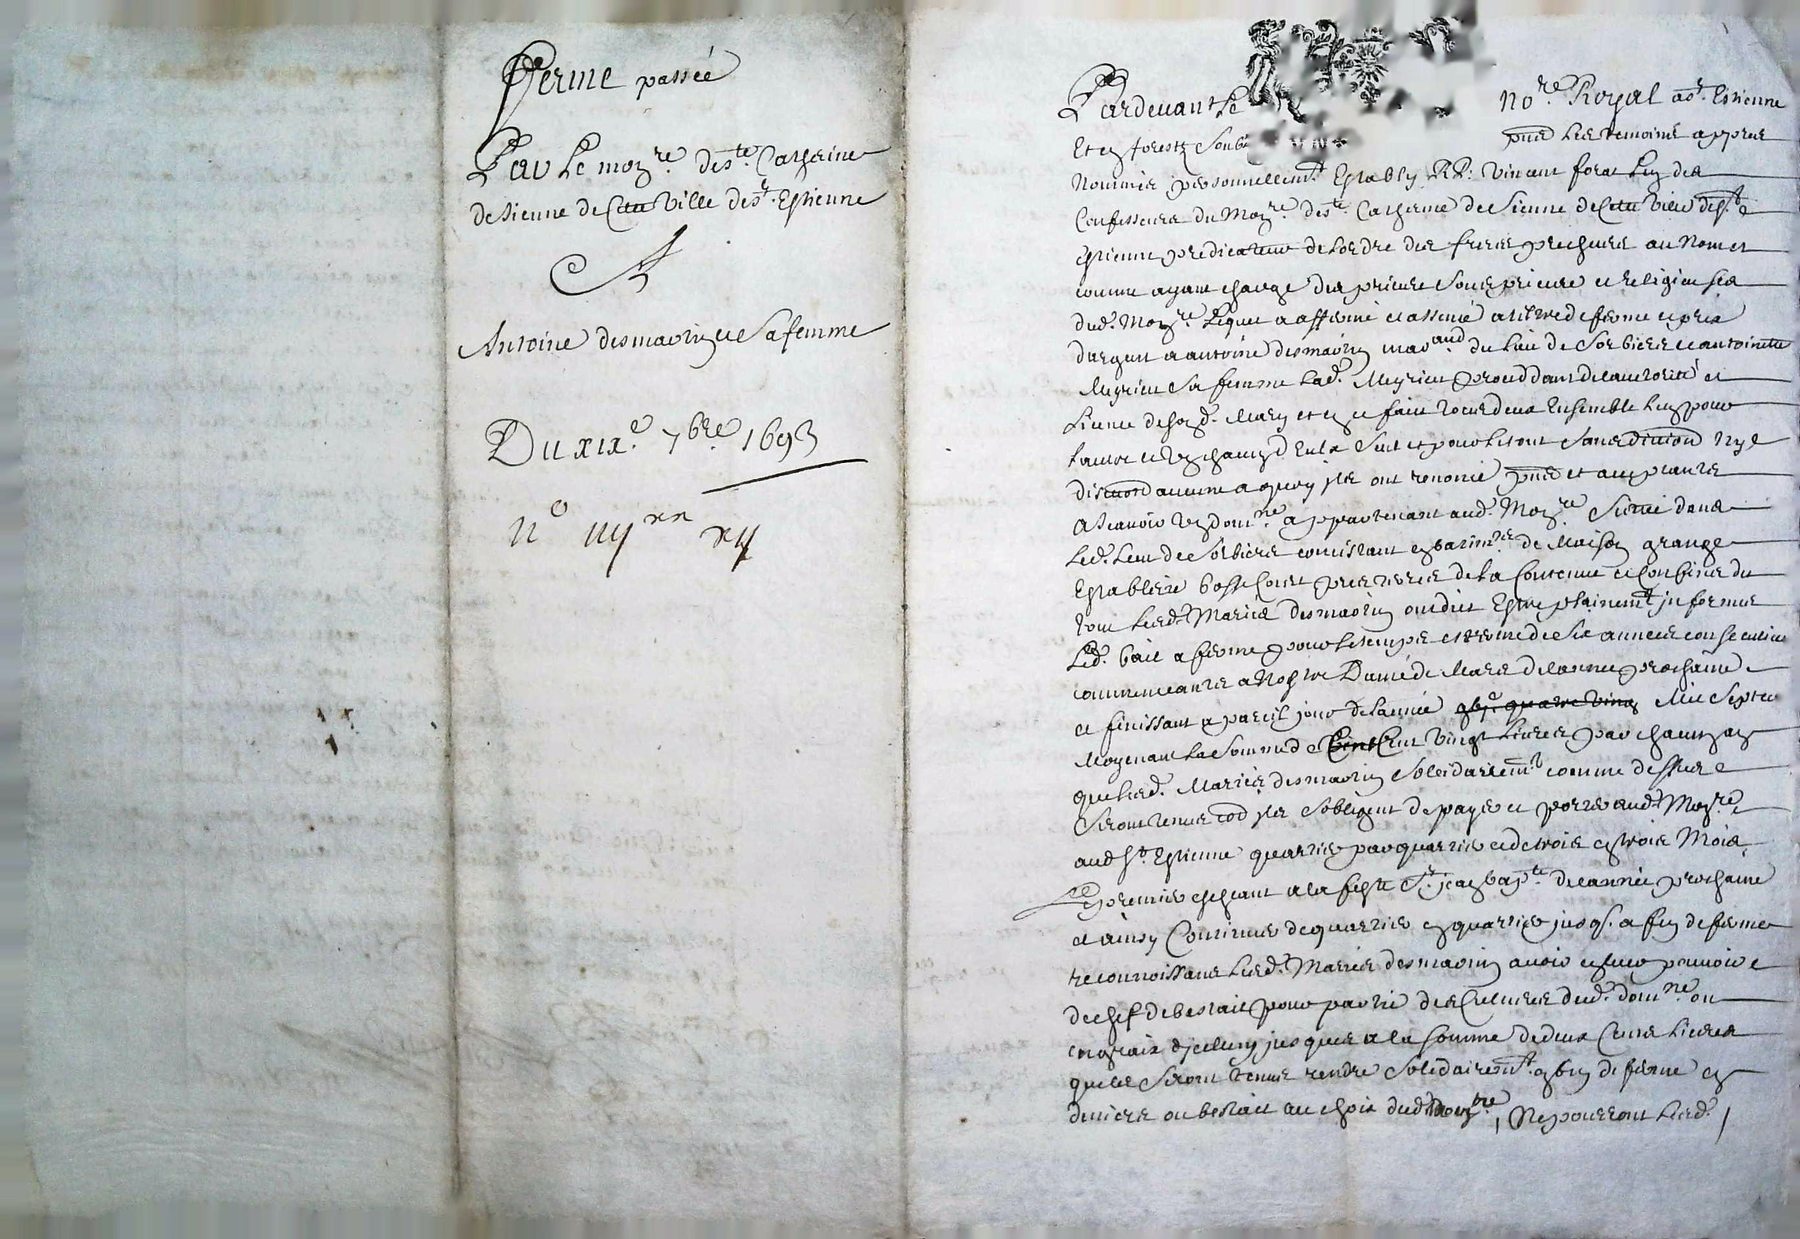 Ferme passée
Par Le mon.re de s.te Catherine
de Sienne de Cette Ville de s.t Estienne
A
Antoine desmartin et Sa femme
Du xix.e 7bre 1693
n.o iiij xx xij
Pardevant Le no.re Royal a s.t Estienne
Et en forestz Soub pnts Les temoins apres
Nommés personnellem.t Estably R.P. vincent forat Lun des
Confesseurs du Mon.re de s.te Catherine de Sienne de Cette ville de s.t
Estienne predicateur de Lordre des freres prescheurs au Nom et
comme ayant charge des prieure Sousprieure et religieuses
dud. Mon.re Lequel a affermé et assencé a tiltre de ferme et prix
dargent a antoine desmartin marchand du Lieu de Sorbiers et antoinette
Meyrieu Sa femme Lad. Meyrieu proceddant de lauctorité et
Licence de sond. Mary et en ce faict tous deux Ensemble Lun pour
Lautre et un chacun deux Seul et pour Le tout Sans division ny
discution aucune a quoy ils ont renoncé pnts et acceptants
A Scavoir un dom.ne appartenant aud. Mon.re Scitué dans
Led. Lieu de Sorbiers concistant en batim.ts de Maison grange
Establerie basse Court prés terres de La Contenue et Confins du
tout Lesd. Mariés desmartin ont dict Estre plainem.t informés
Led. bail a ferme pour Le temps et terme de Six années consecutives
commenceantes a Nostre Dame de Mars de lannée prochaine
et finissant a pareil jour de lannée Mil Sept cent
Moyenant La Somme de Cent vingt Livres par chacun an
que Lesd. Mariés desmartin Solidairem.t comme dessus
Seront tenus comme ils Sobligent de payer et porter aud. Mon.re
aud. St. Estienne quartier par quartier et de trois en trois Mois
Le premier escheant a la feste St. jean bap.te de lannée prochaine
et ainsy Continuer de quartier en quartier jusqs. a fin de ferme
reconnoissans Lesd. Mariés desmartin avoir
de chef de bestail pour partie des Cultures dud. dom.ne ou
engrais dyceluy jusques a la somme de deux Cents Livres
quils Seront tenus rendre Solidairem.t en fin de ferme en
deniers ou bestail au choix dud. Mon.re, Ne pourront Lesd.